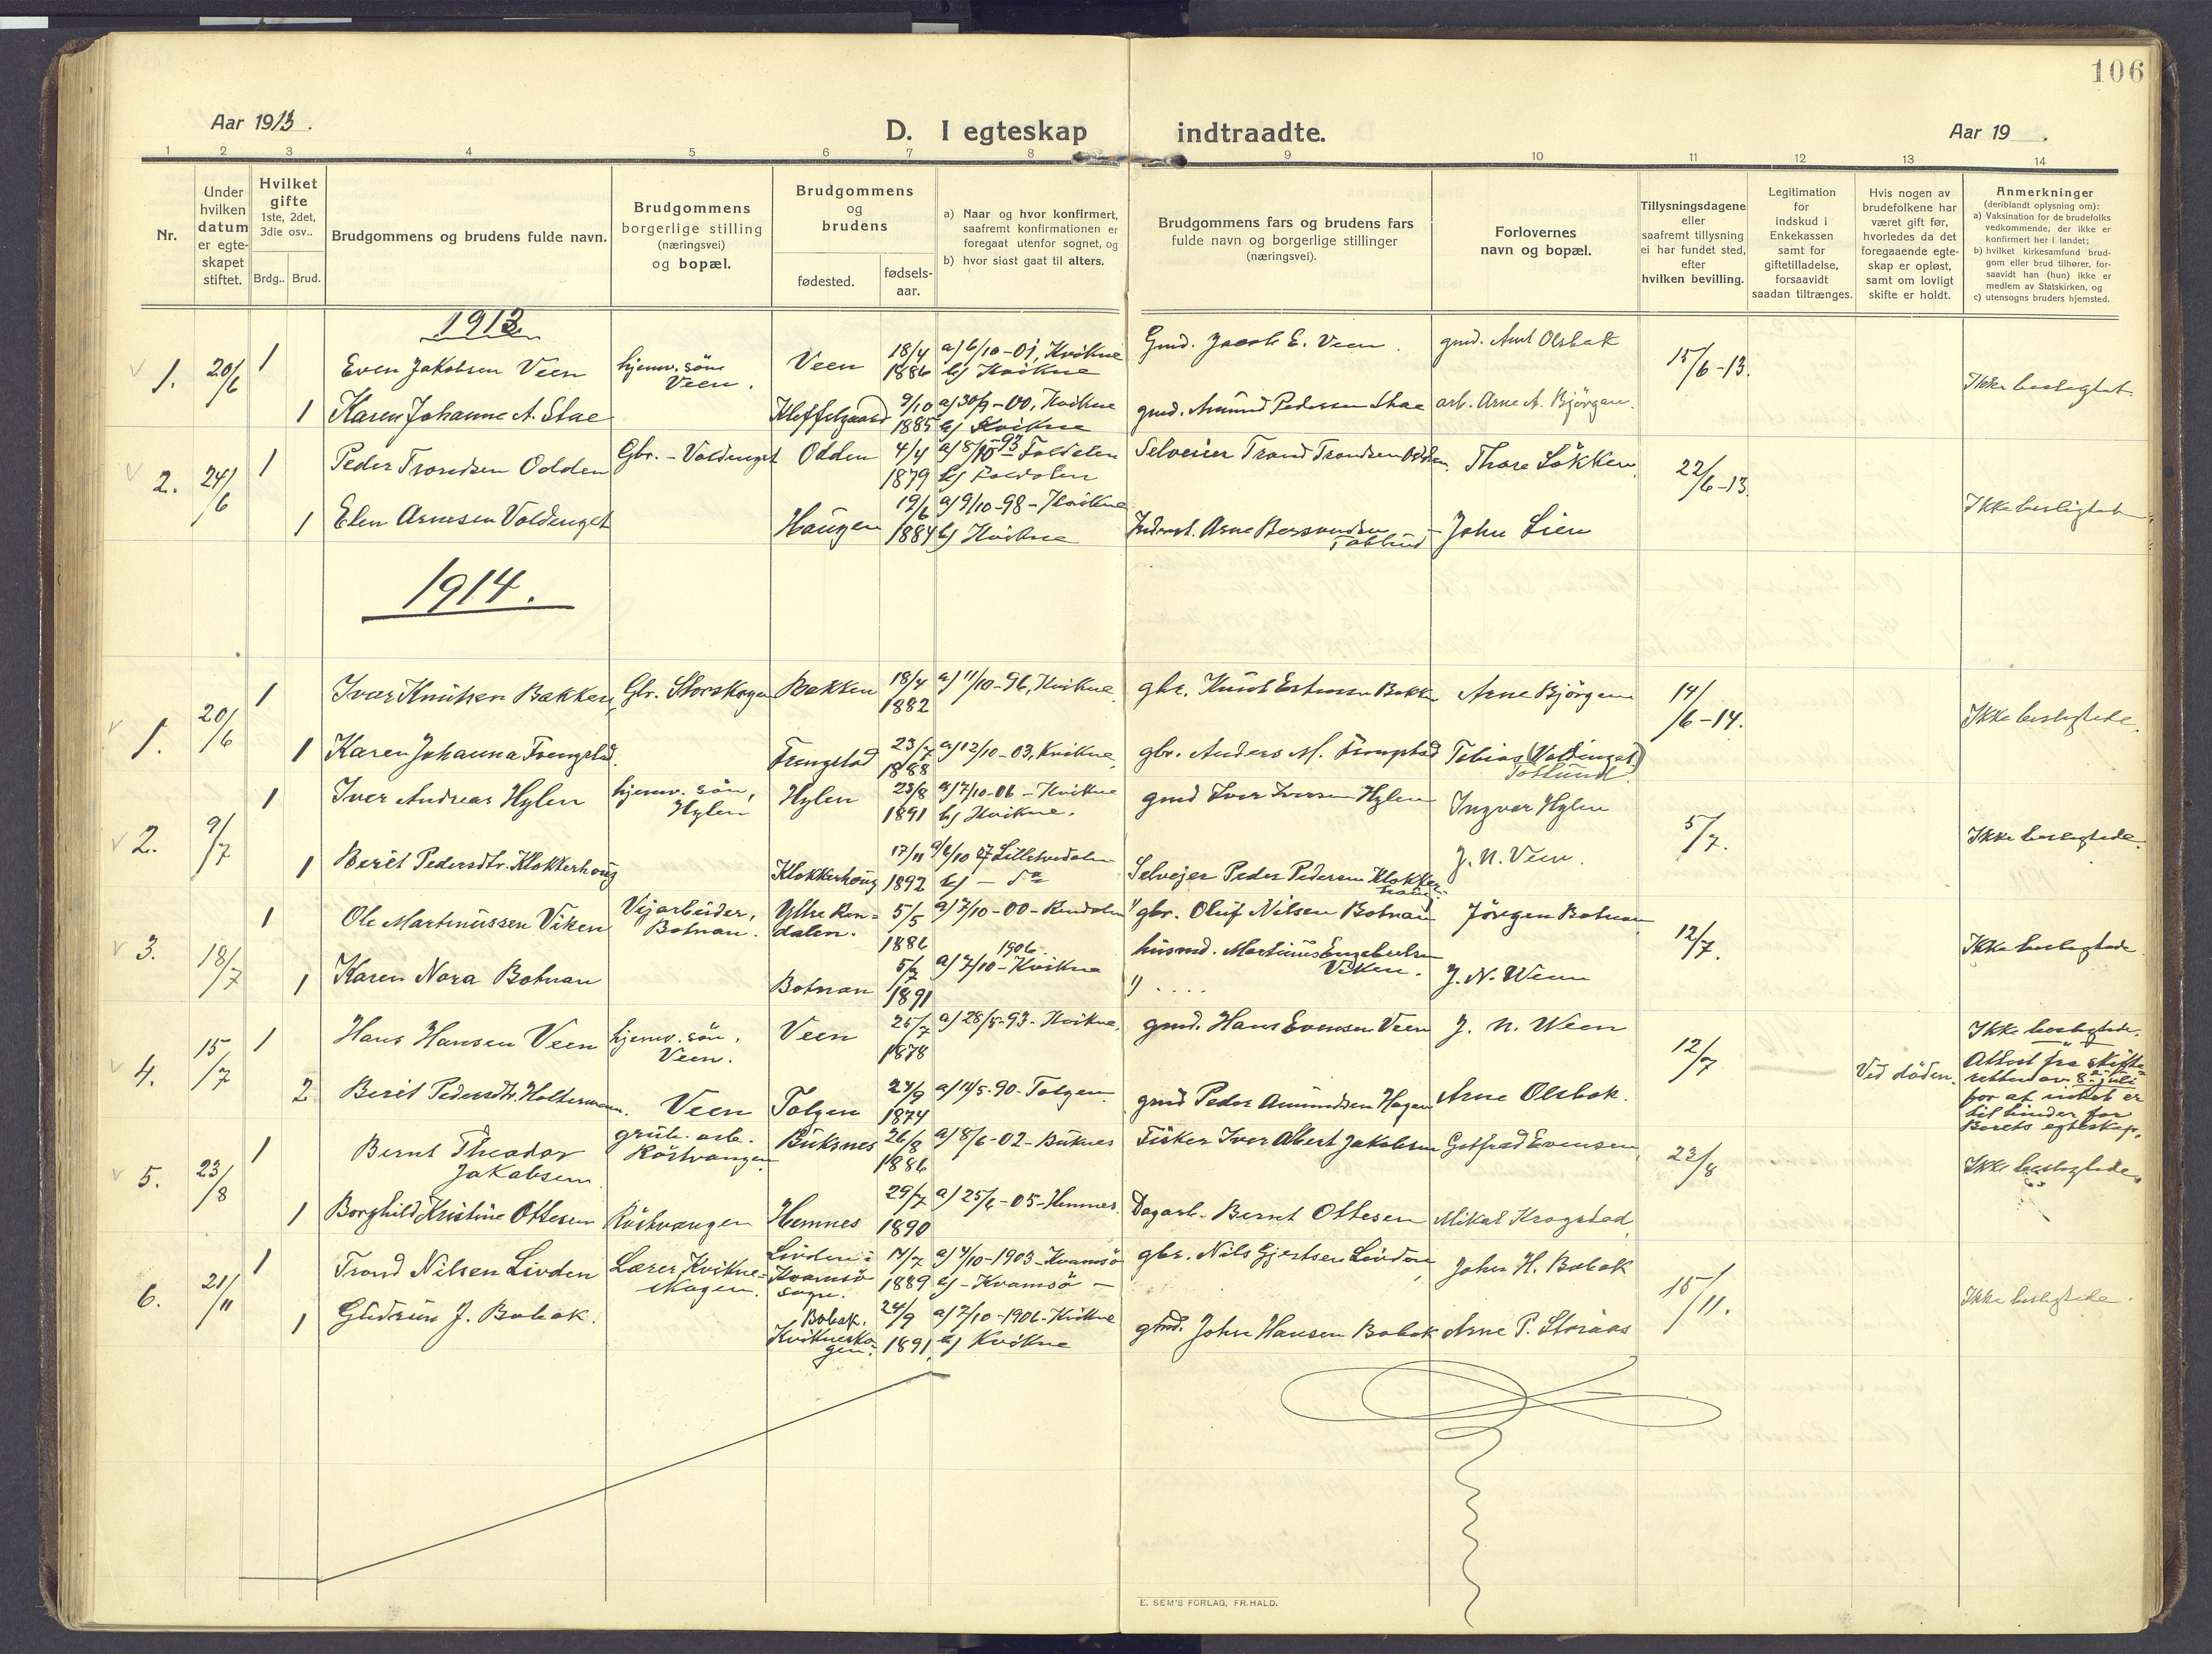 106
Aar 1913.
D. I egteskap indtraadte.
Aar 19 .
1 2 3 4 5 6 7 8 9 10 11 12 13 14
Nr.
Under
hvilken
datum
er egte-
skapet
stiftet.
Hvilket
gifte
1ste, 2det,
3die osv..
Brdg.. Brud.
Brudgommens og brudens fulde navn.
Brudgommens
borgerlige stilling
(næringsvei)
og bopæl.
Brudgommens
og
brudens
fødested.
fødsels-
aar.
a) Naar og hvor konfirmert,
saafremt konfirmationen er
foregaat utenfor sognet, og
b) hvor sidst gaat til alters.
Brudgommens fars og brudens fars
fulde navn og borgerlige stillinger
(næringsvei).
Forlovernes
navn og bopæl.
Tillysningsdagene
eller
saafremt tillysning
ei har fundet sted,
efter
hvilken bevilling.
Legitimation
for
indskud i
Enkekassen
samt for
giftetilladelse,
forsaavidt
saadan tiltrænges.
Hvis nogen av
brudefolkene har
været gift før,
hvorledes da det
foregaaende egte-
skap er opløst,
samt om lovligt
skifte er holdt.
Anmerkninger
(deriblandt oplysning om):
a) Vaksination for de brudefolks
vedkommende, der ikke er
konfirmert her i landet;
b) hvilket kirkesamfund brud-
gom eller brud tilhører, for-
saavidt han (hun) ikke er
medlem av Statskirken, og
c) utensogns bruders hjemsted.
1913
1. 20/6 1 Even Jakobsen Veen hjemv. søn Veen. Veen 18/4 1886 a) 6/10-01, Kvikne b) Kvikne Gmd. Jacob E. Veen. gmd. Arnt Olsbak 15/6-13. Ikke beslegtet.
1 Karen Johanne A. Stae 9/10 1885 a) 30/9-00, Kvikne b) Kvikne gmd. Amund Pedersen Stae arb. Arne A. Bjørgen.
2. 24/6 1 Peder Trondsen Odden Gbr. - Voldenget Odden 4/4 1879 a) 8/10-93 Foldalen b) Foldalen Selveier Trond Trondsen Odden. Thore Løkken 22/6-13. Ikke besligtet
1 Elen Arnesen Voldenget Haugen 19/6 1884 a) 9/10-98 - Kvikne b) Kvikne Arne John Lien
1914.
1. 20/6 1 Ivar Knutsen Bakken, Gbr. Storskogen Bakken 18/4 1882 a) 11/10-96, Kvikne. gbr. Knut Estensen Bakk Arne Bjørgen 14/6-14. Ikke beslegtede.
1 Karen Johanna Frengstad. Frengstad 23/7 1888 a) 12/10-03, Kvikne, gbr. Anders M. Frengstad Tobias (Voldenget) Toslund
2. 9/7 1 Iver Andreas Hylen hjemv. søn, Hylen Hylen 23/8 1891 a) 7/10-06 - Kvikne b) Kvikne. gmd Iver Iversen Hylen Ingvar Hylen 5/7. Ikke beslegtede.
1 Berit Pedersdtr. Klokkerhoug Klokkerhoug 17/11 1892 a) 6/10 07 Lilleelvedalen b) - do Selvejer Peder Pedersen Klokkerhoug J. N. Veen.
3. 18/7 1 Ole Martinussen Viken Vejarbeider, Botnan. Ytre Rendalen. 5/5 1886 a) 7/10-00 - Rendalen gbr. Oluf Nilsen Botnan Jørgen Botnan 12/7. Ikke beslegtede.
husmd. Martinus Engebretsen Viken.
1 Karen Nora Botnan Botnan 5/7 1891 a) 7/10 1906 - Kvikne " .... J. N. Ween
4. 15/7 1 Hans Hansen Veen hjemv. søn. Veen. Veen 25/7 1878 a) 28/5-93 - Kvikne. gmd. Hans Evensen Veen J. N. Ween 12/7 Ikke beslegtede.
2 Berit Pedersdtr. Holtermann. Veen Tolgen 27/9 1874 a) 14/5-90 - Tolgen. gmd Peder Amundsen Hagen Arne Olsbak. Ved døden.
Attest fra skifte-
retten av 8de juli
for at intet er
til hinder for
Berets egteskap.
5. 23/8 1 Bernt Theodor Jakobsen grube arb. Røstvangen. Buksnes 26/8 1886 a) 8/6-02 - Buksnes Fisker Iver Albert Jakobsen Gotfred Evensen, 23/8 Ikke beslegtede.
1 Borghild Kristine Ottesen Røstvangen Hemnes 29/7 1890 a) 25/6-05 - Hemnes. Dagarb. Bernt Ottesen Mikal Krogstad
6. 21/11 1 Trond Nilsen Livden Lærer, Kvikne-skogen. Livden i Kvamsø sogn. 14/7 1889 a) 4/10-1903 - Kvamsø b) - Kvamsø - gbr. Nils Gjertsen Livden, John H. Bobak 15/11. Ikke beslegtede.
1 Gudrun J. Bobak. Bobak. Kvikneskogen. 24/9 1891. a) 7/10-1906 - Kvikne b) Kvikne gmd. John Hansen Bobak Arne P. Storaas
E. SEM'S FORLAG, FR.HALD.